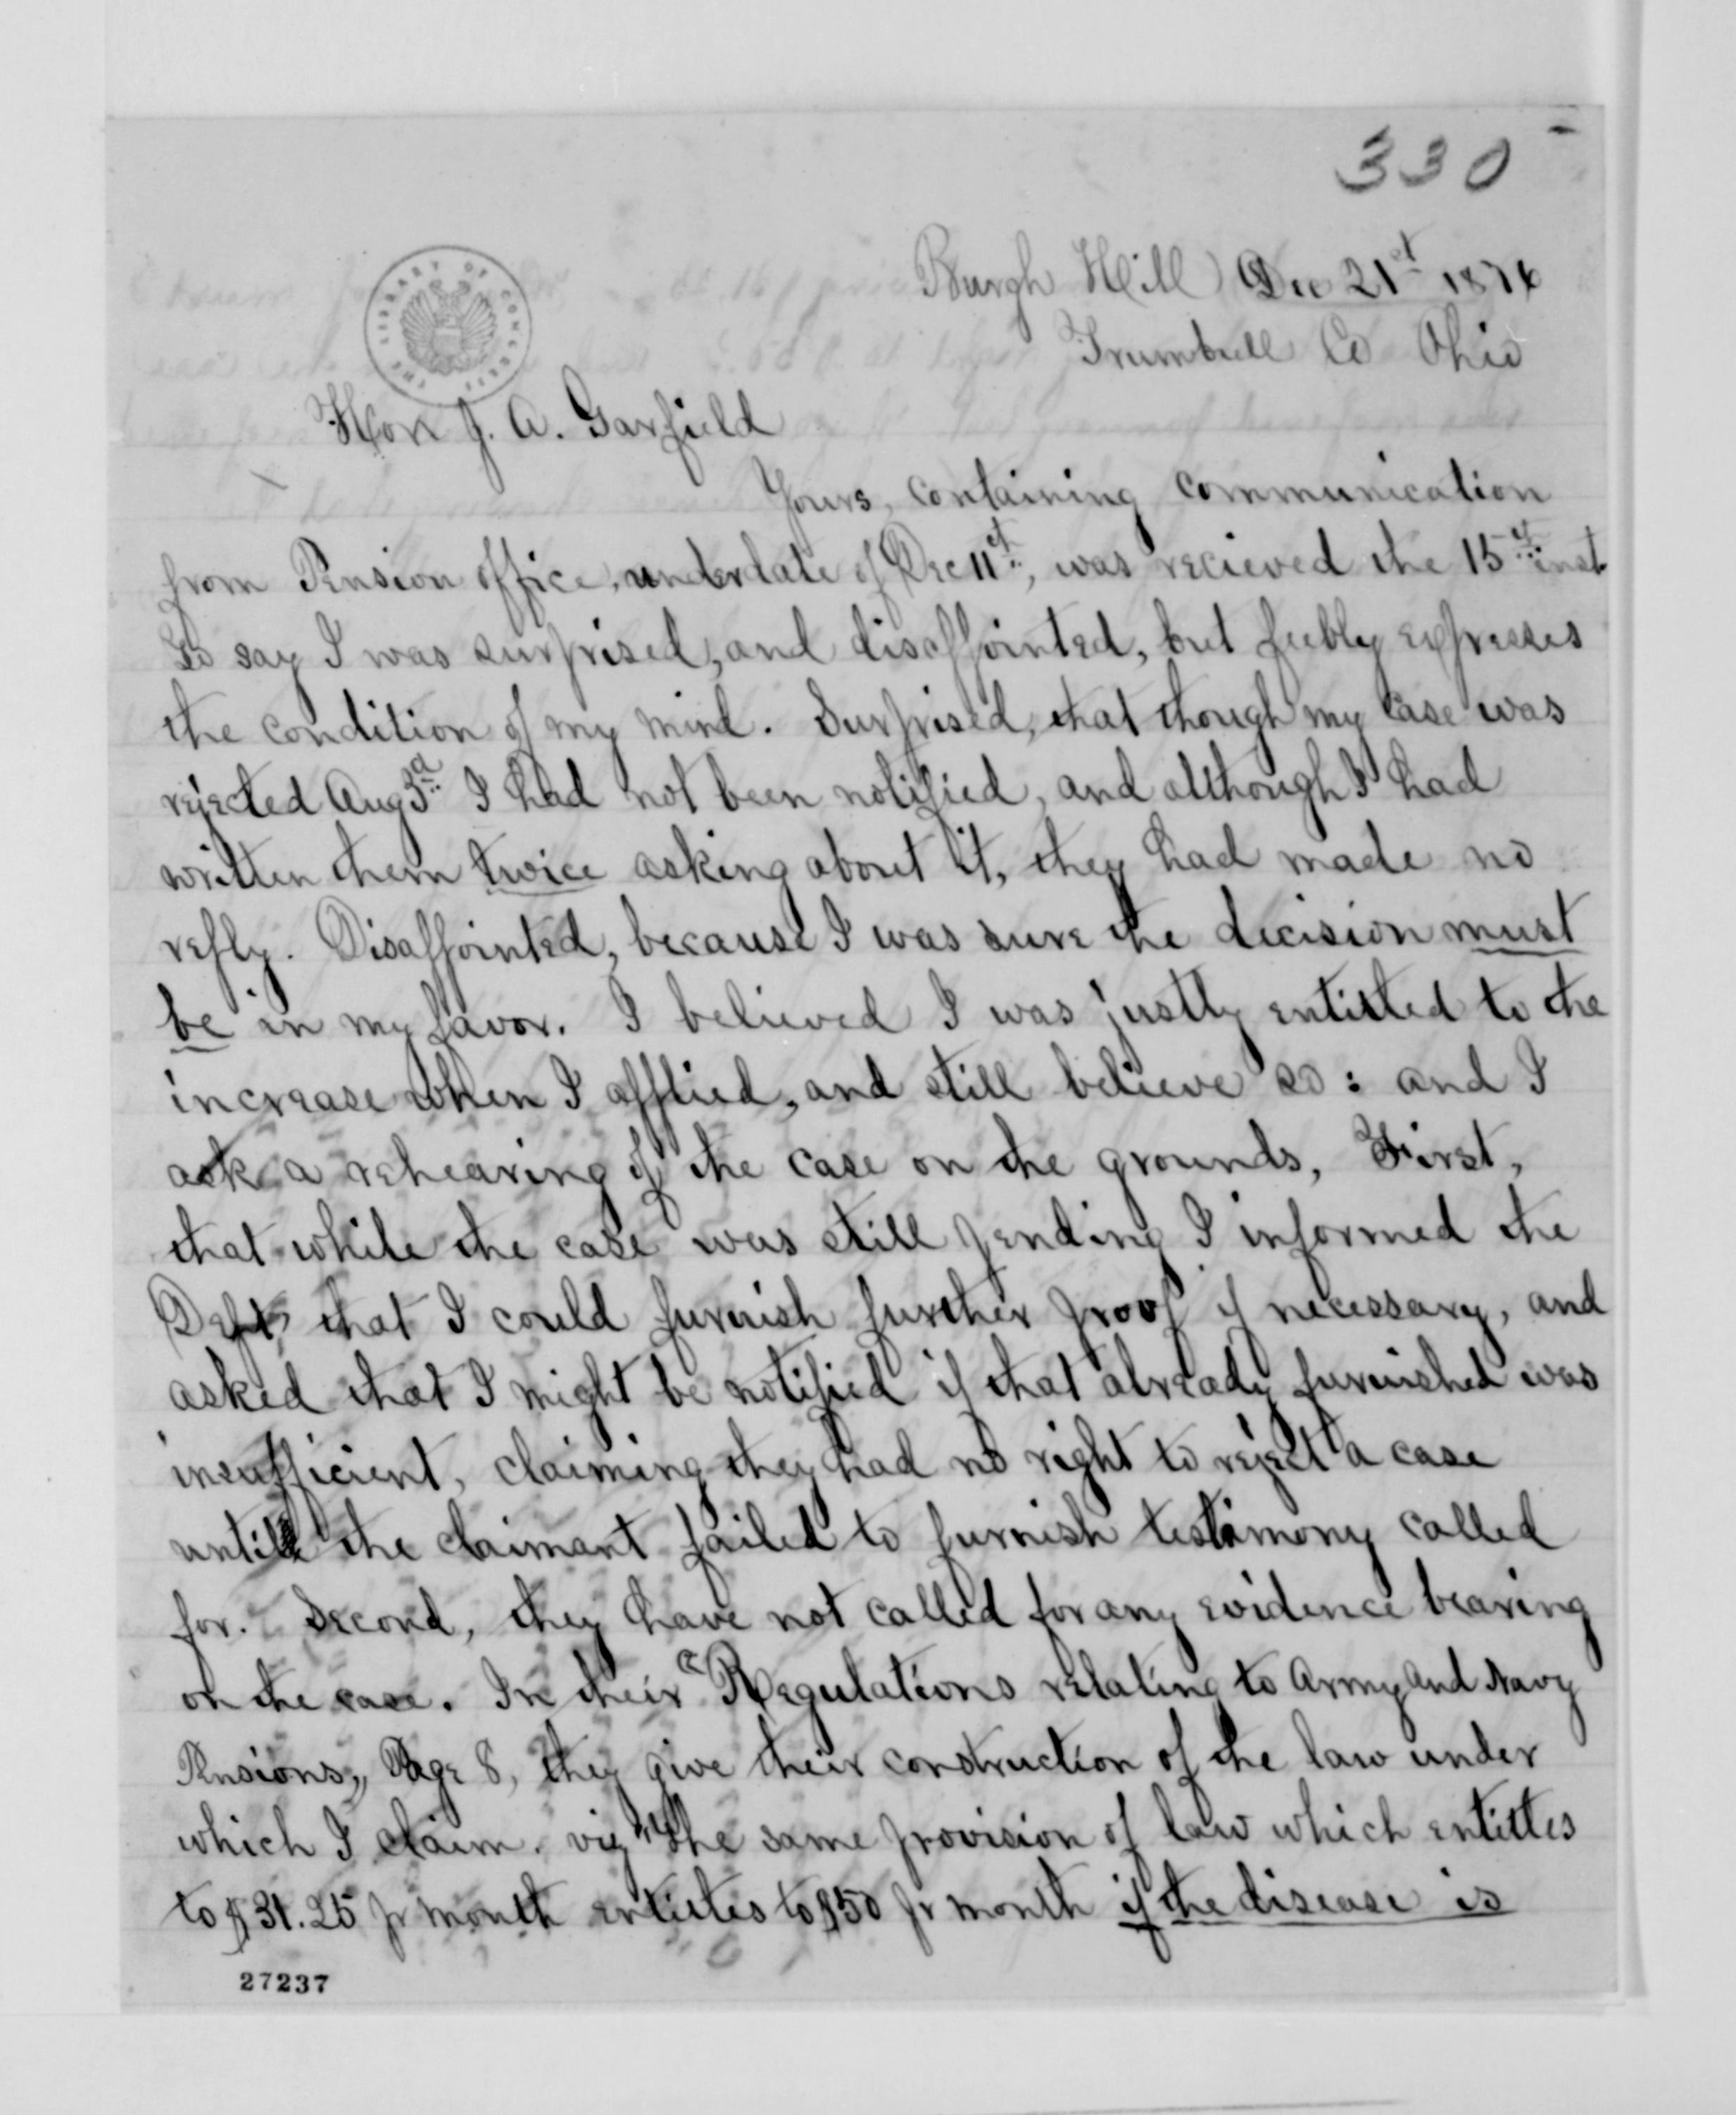 330
Burgh Hill Dec 21st 1876
Trumbull Co Ohio
THE LIBRARY OF CONGRESS
Hon J. A. Garfield
Yours, containing communication
from Pension office, under date of Dec 11th, was recieved the 15th inst.
To say I was surprised, and disappointed, but feebly expresses
the condition of my mind. Surprised, that though my case was
rejected Aug 3d I had not been notified, and although I had
written them twice asking about it, they had made no
reply. Disappointed, because I was sure the decision must
be in my favor. I believed I was justly entitled to the
increase when I applied, and still believe so: and I
ask a rehearing of the case on the grounds, First,
that while the case was still pending I informed the
Dept, that I could furnish further proof if necessary, and
asked that I might be notified if that already furnished was
insufficient, claiming they had no right to reject a case
until the claimant failed to furnish testimony called
for. Second, they have not called for any evidence bearing
on the case. In their "Regulations relating to Army and Navy
Pensions," Page 8, they give their construction of the law under
which I claim. viz "The same provision of law which entitles
to $31.25 pr month entitles to $50 pr month if the disease is
27237